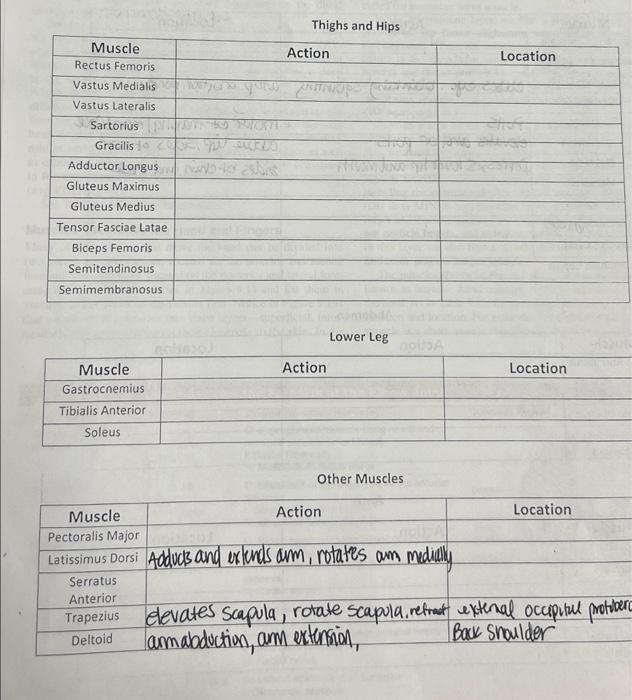 Thighs and Hips
Muscle Action Location
Rectus Femoris
Vastus Medialis
Vastus Lateralis
Sartorius
Gracilis
Adductor Longus
Gluteus Maximus
Gluteus Medius
Tensor Fasciae Latae
Biceps Femoris
Semitendinosus
Semimembranosus
Lower Leg
Muscle Action Location
Gastrocnemius
Tibialis Anterior
Soleus
Other Muscles
Muscle Action Location
Pectoralis Major
Latissimus Dorsi Adducts and extends arm, rotates arm medially
Serratus
Anterior
Trapezius elevates scapula, rotate scapula, retract external occipital
Deltoid arm abduction, arm extension, Back Shoulder